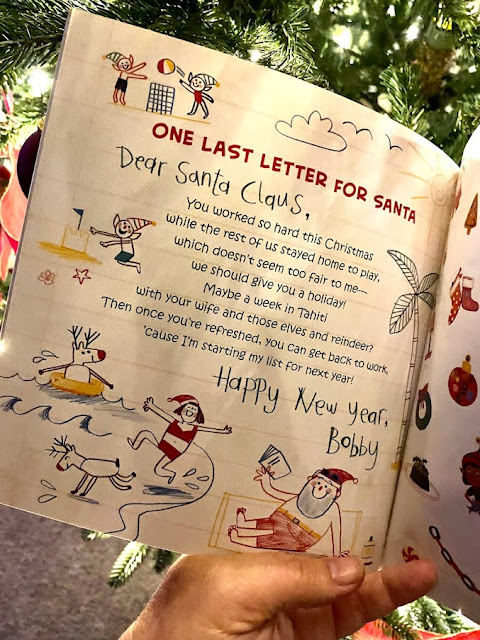 ONE LAST LETTER FOR SANTA
Dear Santa Claus,
You worked so hard this Christmas
while the rest of us stayed home to play,
which doesn't seem too fair to me—
we should give you a holiday!
Maybe a week in Tahiti
with your wife and those elves and reindeer?
Then once you're refreshed, you can get back to work,
'cause I'm starting my list for next year!
Happy New Year,
Bobby